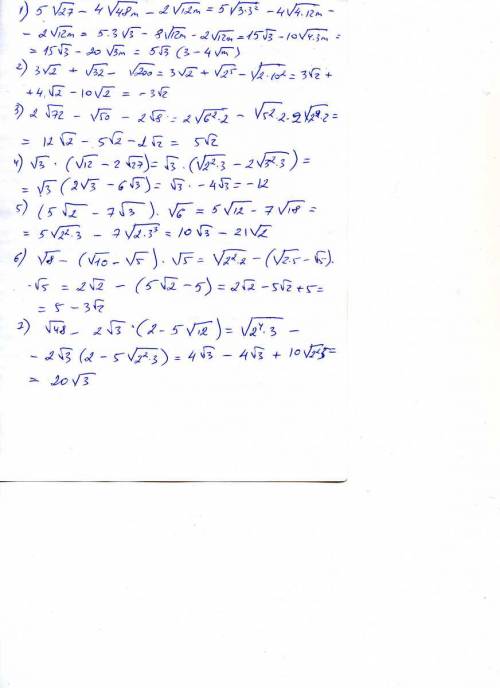 1) 5√27 - 4√48m - 2√12m = 5√3·3² - 4√4·12m -
- 2√12m = 5·3√3 - 8√12m - 2√12m = 15√3 - 10√4·3m =
= 15√3 - 20√3m = 5√3 (3 - 4√m)
2) 3√2 + √32 - √200 = 3√2 + √2⁵ - √2·10² = 3√2 +
+ 4√2 - 10√2 = -3√2
3) 2√72 - √50 - 2√8 = 2√6²·2 - √5²·2 - 2√2²·2 =
= 12√2 - 5√2 - 2√2 = 5√2
4) √3 · (√12 - 2√27) = √3 · (√2²·3 - 2√3²·3) =
= √3 (2√3 - 6√3) = √3 · -4√3 = -12
5) (5√2 - 7√3) · √6 = 5√12 - 7√18 =
= 5√2²·3 - 7√2·3² = 10√3 - 21√2
6) √8 - (√10 - √5) · √5 = √2²·2 - (√2·5 - √5)·
·√5 = 2√2 - (5√2 - 5) = 2√2 - 5√2 + 5 =
= 5 - 3√2
7) √48 - 2√3 · (2 - 5√12) = √2⁴·3 -
- 2√3 (2 - 5√2²·3) = 4√3 - 4√3 + 10√2²·3 =
= 20√3